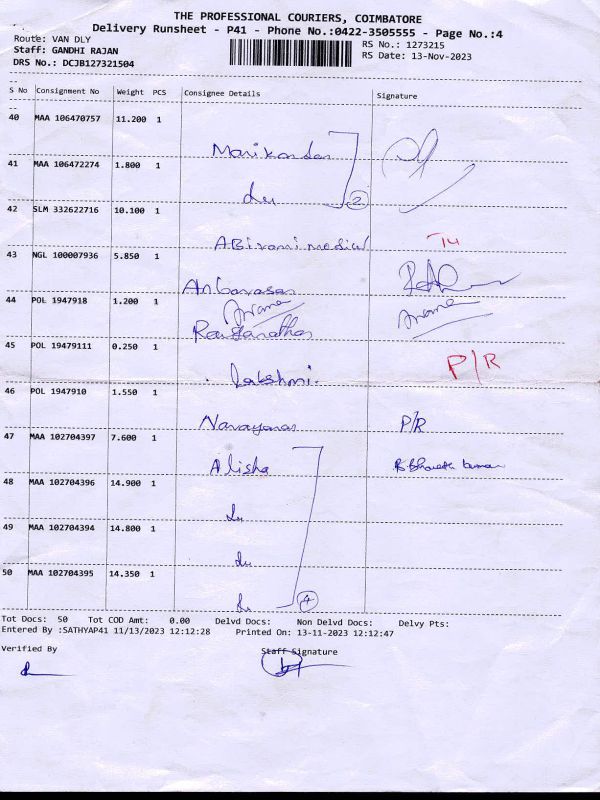 THE PROFESSIONAL COURIERS, COIMBATORE
Delivery Runsheet - P41 - Phone No.:0422-3505555 - Page No.:4
Route: VAN DLY RS No.: 1273215
Staff: GANDHI RAJAN RS Date: 13-Nov-2023
DRS No.: DCJB127321504
S No Consignment No Weight PCS Consignee Details Signature
40 MAA 106470757 11.200 1
Manikandan
41 MAA 106472274 1.800 1
du 2
42 SLM 332622716 10.100 1
ABirami medical
43 NGL 100007936 5.850 1
Anbarasan
44 POL 1947918 1.200 1
Ranganathan
45 POL 19479111 0.250 1 P/R
Lakshmi.
46 POL 1947910 1.550 1
Narayanan P/R
47 MAA 102704397 7.600 1
Alisha
48 MAA 102704396 14.900 1
du
49 MAA 102704394 14.800 1
du
50 MAA 102704395 14.350 1
du 4
Tot Docs: 50 Tot COD Amt: 0.00 Delvd Docs: Non Delvd Docs: Delvy Pts:
Entered By :SATHYAP41 11/13/2023 12:12:28 Printed On: 13-11-2023 12:12:47
Verified By Staff Signature